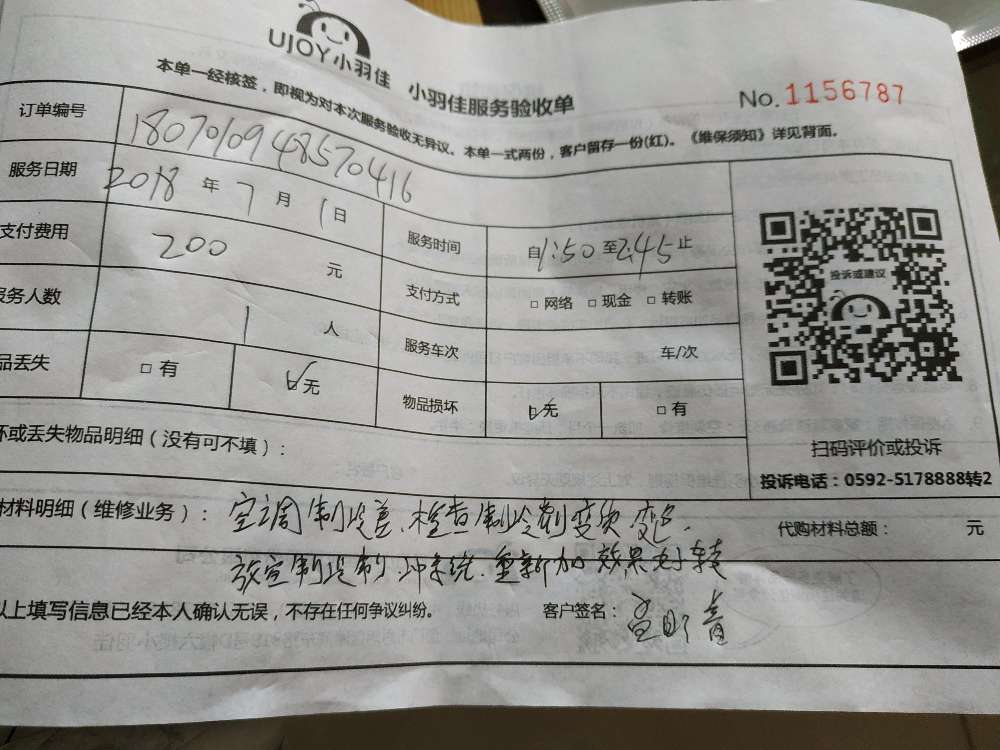 UJOY小羽佳 小羽佳服务验收单
No. 1156787
本单一经核签，即视为对本次服务验收无异议。本单一式两份，客户留存一份(红)。《维保须知》详见背面。
订单编号 1807010948570416
服务日期 2018 年 7 月 1 日 服务时间 自1:50 至2:45止
支付费用 200 元 支付方式 □ 网络 □ 现金 □ 转账
服务人数 1 人 服务车次 车/次
品丢失 □ 有 ☑无 物品损坏 ☑无 □ 有
投诉或建议
扫码评价或投诉
投诉电话：0592-5178888转2
坏或丢失物品明细（没有可不填）：
材料明细（维修业务）： 空调制冷差、检查制冷剂变质变
代购材料总额： 元
放空制冷剂 冲系统.重新加 效果好转
以上填写信息已经本人确认无误，不存在任何争议纠纷。 客户签名：